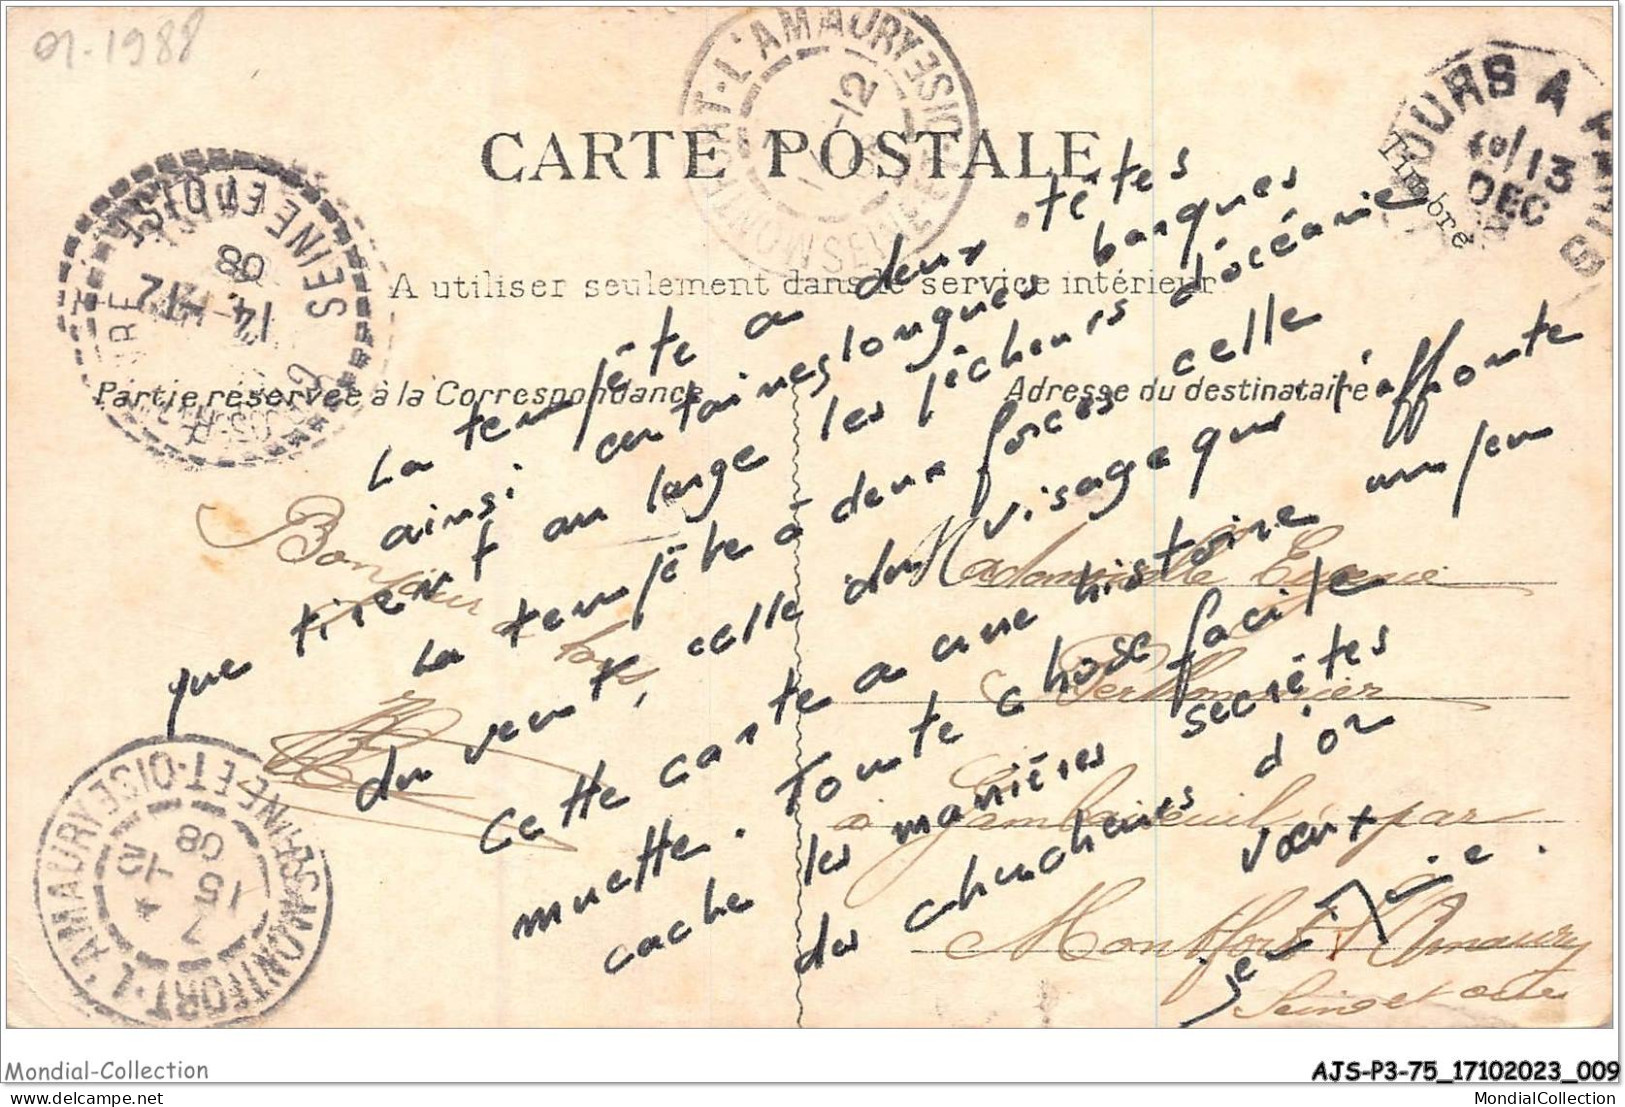 01-1988
MONTFORT-L'AMAURY
SEINE-ET-OISE
TOURS A PARIS
13
DEC
CARTE POSTALE
Timbre
A utiliser seulement dans le service intérieur
Partie réservée à la Correspondance
Adresse du destinataire
SEINE ET OISE
14-12
08
MONTFORT-L'AMAURY
SEINE-ET-OISE
15
12
08
La tempête a deux têtes
ainsi certaines longues barques
que tirent au large les pêcheurs d'océanie
La tempête a deux forces celle
du vent, celle du visage qui l'affronte
Cette carte a une histoire un peu
muette. Toute chose facile
cache les manières secrètes
des chercheurs d'or
vœux
Bonjour
à tous
Mademoiselle Eugenie
à Gambaiseuil par
Montfort l'Amaury
Seine et Oise
Mondial-Collection
AJS-P3-75_17102023_009
MondialCollection